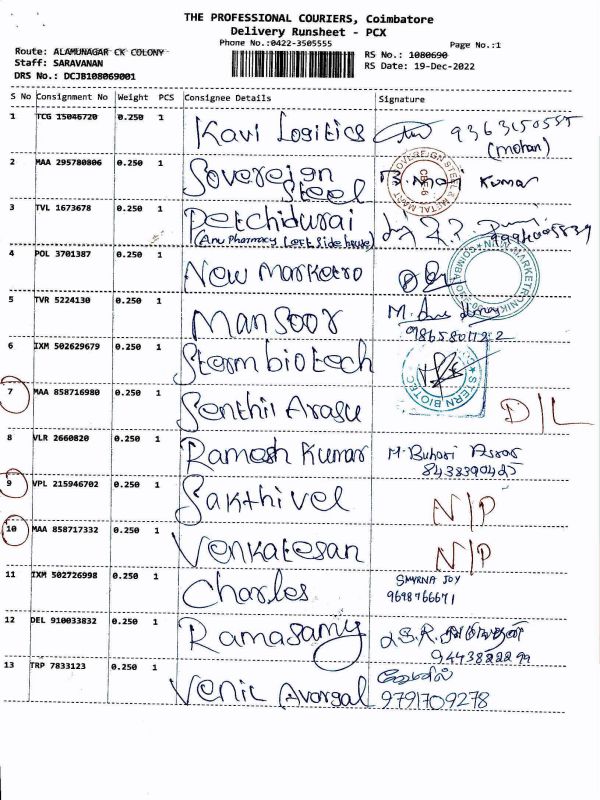 THE PROFESSIONAL COURIERS, Coimbatore
Delivery Runsheet - PCX
Phone No.:0422-3505555
Page No.:1
Route: ALAMUNAGAR CK COLONY
RS No.: 1080690
Staff: SARAVANAN
RS Date: 19-Dec-2022
DRS No.: DCJB108069001
S No Consignment No Weight PCS Consignee Details Signature
1 TCG 15046720 0.250 1 Kavi Logitics 9363150555
(mohan)
2 MAA 295780806 0.250 1 Sovereign Steel Kumar
SOVEREIGN STEEL & METAL MART
CBE-6
3 TVL 1673678 0.250 1 Petchidurai
(Anu Pharmacy Left side house)
4 POL 3701387 0.250 1 New Marketro
NEW MARKETRONIKS
5 TVR 5224130 0.250 1 Mansoor M.
6 IXM 502629679 0.250 1 Stermbiotech
STERN BIOTEC
7 MAA 858716980 0.250 1 Senthil Arasu D/L
8 VLR 2660820 0.250 1 Ramesh Kumar M. Buhari
9 VPL 215946702 0.250 1 Sakthivel N/P
10 MAA 858717332 0.250 1 Venkatesan N/P
11 IXM 502726998 0.250 1 Charles SMYRNA JOY
9698766671
12 DEL 910033832 0.250 1 Ramasamy
13 TRP 7833123 0.250 1 Venil Avargal
9791709278